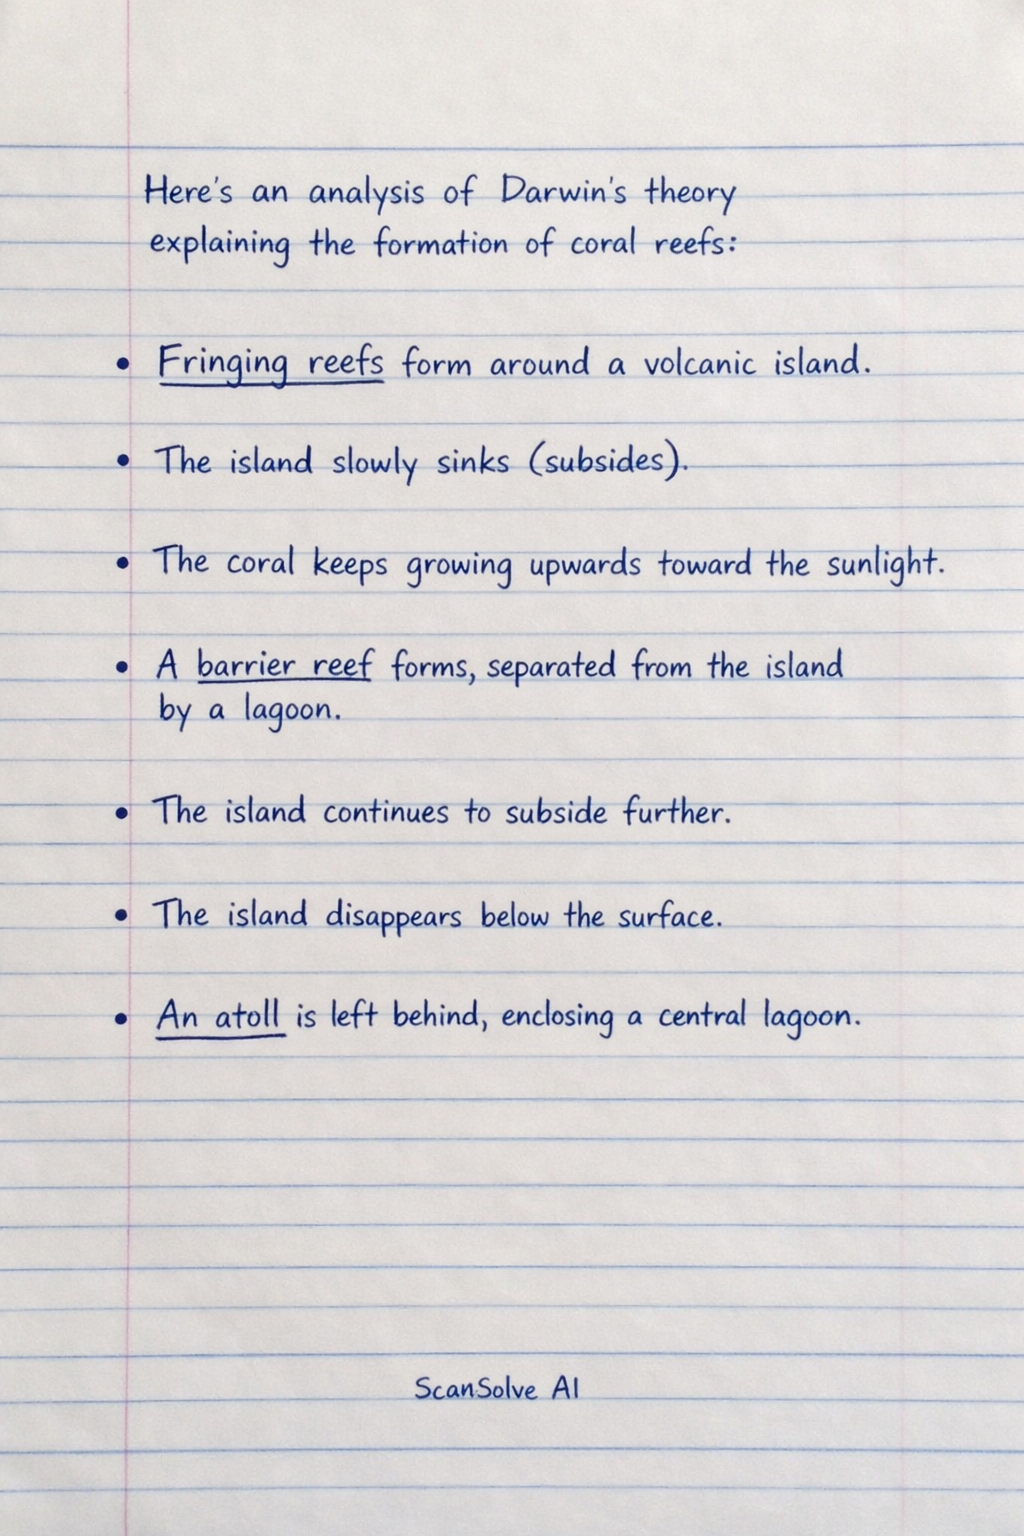 Here's an analysis of Darwin's theory
explaining the formation of coral reefs:
• Fringing reefs form around a volcanic island.
• The island slowly sinks (subsides).
• The coral keeps growing upwards toward the sunlight.
• A barrier reef forms, separated from the island
by a lagoon.
• The island continues to subside further.
• The island disappears below the surface.
• An atoll is left behind, enclosing a central lagoon.
ScanSolve AI